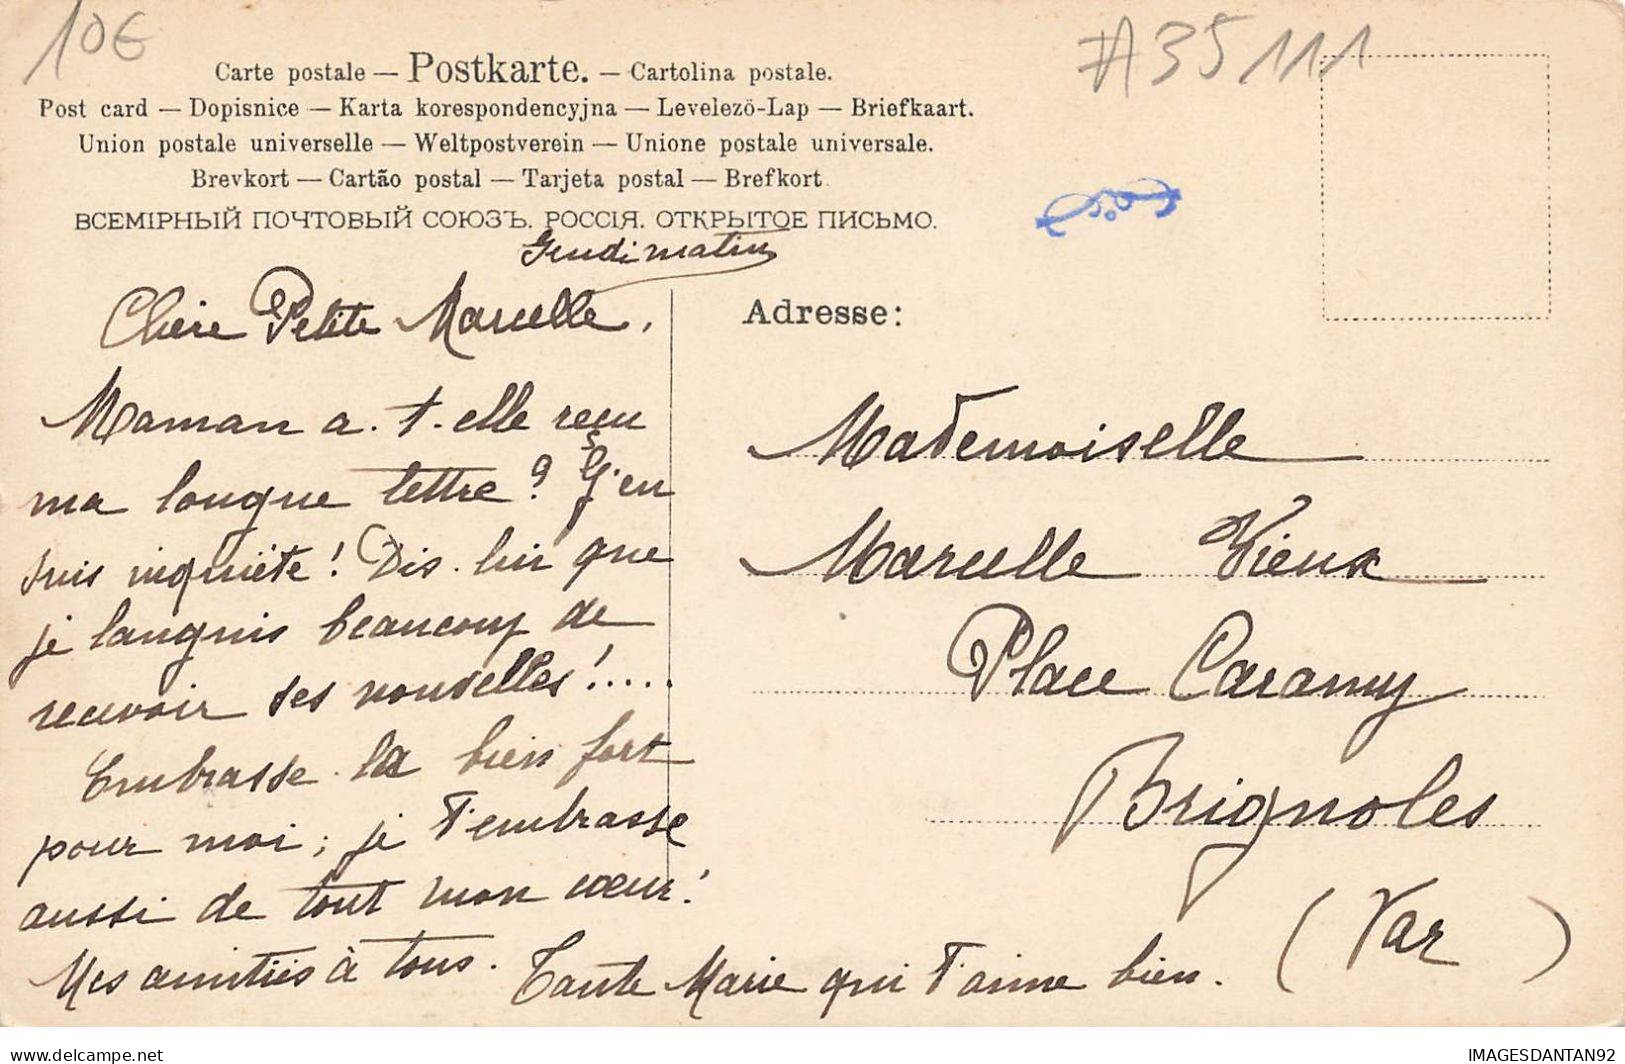 10€
#35111
Carte postale — Postkarte. — Cartolina postale.
Post card — Dopisnice — Karta korespondencyjna — Levelezö-Lap — Briefkaart.
Union postale universelle — Weltpostverein — Unione postale universale.
Brevkort — Cartão postal — Tarjeta postal — Brefkort
ВСЕМІРНЫЙ ПОЧТОВЫЙ СОЮЗЪ. РОССІЯ. ОТКРЫТОЕ ПИСЬМО.
Jeudi matin
Chère Petite Marcelle,
Maman a-t-elle reçu
ma longue lettre? J'en
suis inquiète! Dis-lui que
je languis beaucoup de
recevoir ses nouvelles!....
Embrasse-la bien fort
pour moi; je t'embrasse
aussi de tout mon cœur!
Mes amitiés à tous. Tante Marie qui t'aime bien.
Adresse:
Mademoiselle
Marcelle Vieux
Place Caramy
Brignoles
(Var)
delcampe.com
IMAGESDANTAN92